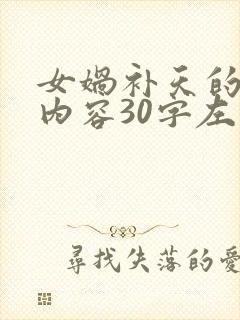 女娲补天的
内容30字左
尋找失落的愛